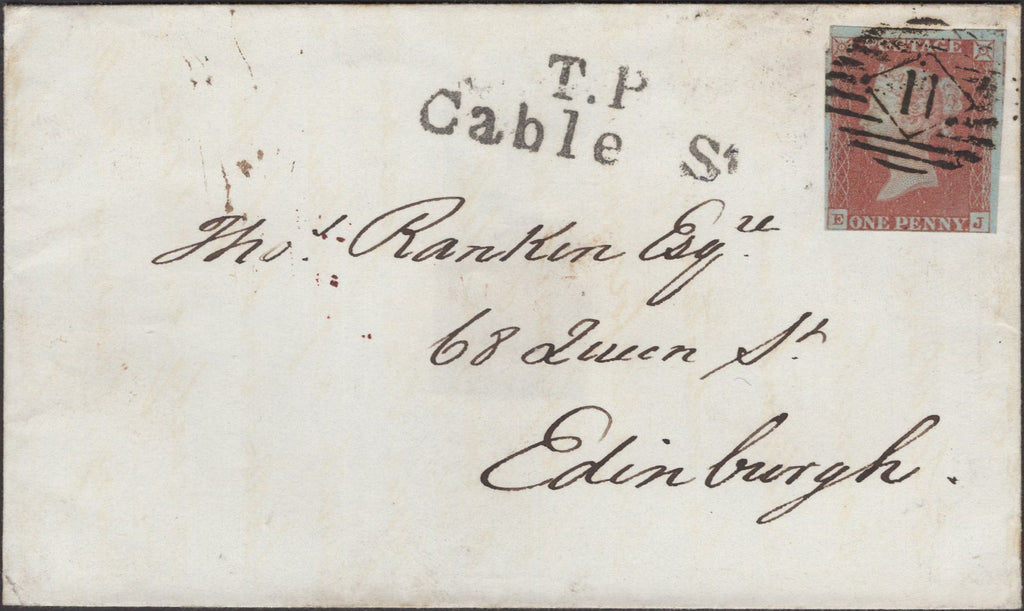 POSTAGE
11
E ONE PENNY. J
T.P
Cable St
Thos. Rankin Esqre
68 Queen St
Edinburgh.